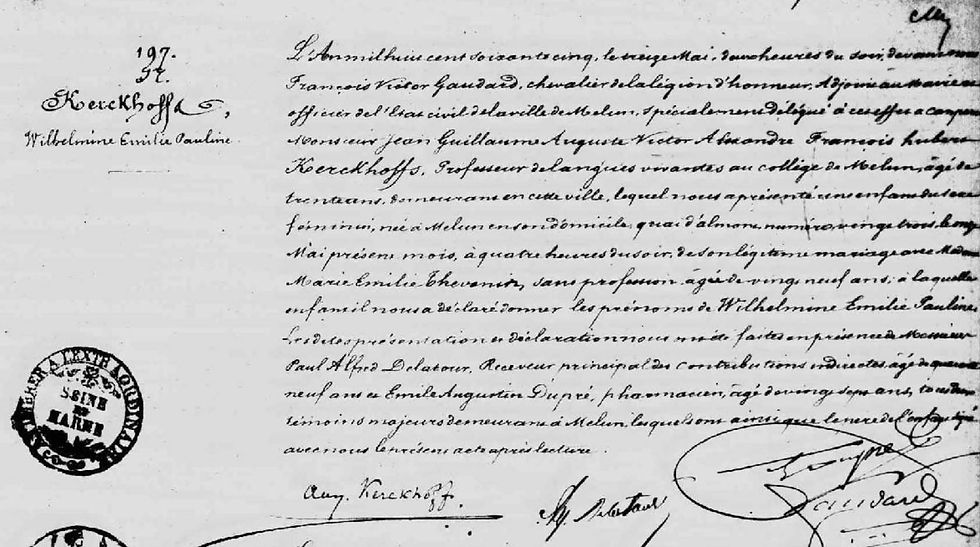 197.
57.
Kerckhoffs
Wilhelmine Emilie Pauline
L'An mil huit cent soixante cinq, le treize Mai, deux heures du soir, devant nous
François Victor Gaudard, chevalier de la légion d'honneur, Adjoint au Maire
officier de l'Etat civil de la ville de Melun, spécialement délégué à cet effet a comparu
Monsieur Jean Guillaume Auguste Victor Alexandre François hubert
Kerckhoffs, Professeur de langues vivantes au collège de Melun, âgé de
trente ans, demeurant en cette ville, lequel nous a présenté un enfant du sexe
féminin, née à Melun en son domicile, quai d'almont, numéro vingt trois, le onze
Mai présent mois, à quatre heures du soir, de son légitime mariage avec Madame
Marie Emilie Thevenin, sans profession âgée de vingt neuf ans, à laquelle
enfant il nous a déclaré donner les prénoms de Wilhelmine Emilie Pauline
Les dites présentation et déclaration nous ont été faites en présence de Messieurs
Paul Alfred Delatour, Receveur principal des contributions indirectes âgé de quarante
neuf ans et Emile Augustin Dupré, pharmacien, âgé de vingt sept ans, tous deux
témoins majeurs demeurant à Melun, lesquels ont ainsi que le père de l'enfant signé
avec nous le présent acte après lecture.
Aug. Kerckhoffs.
Delatour
Dupré
Gaudard
A TIMBRER A L'EXTRAORDINAIRE
SEINE
ET
MARNE